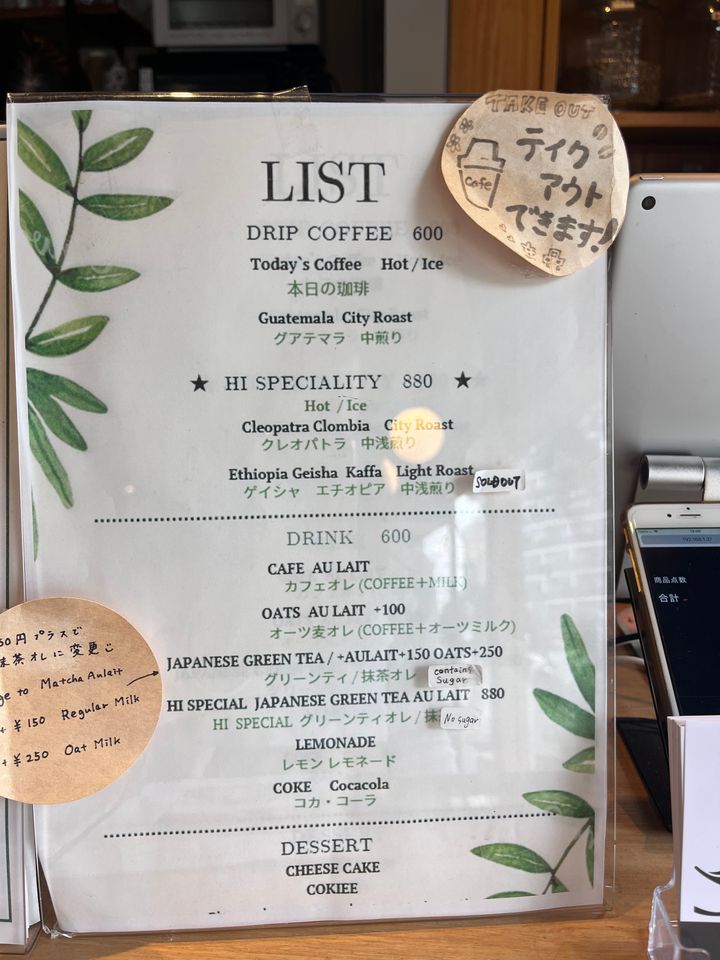 LIST
TAKE OUT
テイク
アウト
できます!
Cafe
DRIP COFFEE 600
Today`s Coffee Hot / Ice
本日の珈琲
Guatemala City Roast
グアテマラ 中煎り
★ HI SPECIALITY 880 ★
Hot / Ice
Cleopatra Clombia City Roast
クレオパトラ 中浅煎り
Ethiopia Geisha Kaffa Light Roast
SOLD OUT
ゲイシャ エチオピア 中浅煎り
DRINK 600
CAFE AU LAIT
カフェオレ (COFFEE+MILK)
OATS AU LAIT +100
オーツ麦オレ (COFFEE+オーツミルク)
JAPANESE GREEN TEA / +AULAIT+150 OATS+250
グリーンティ / 抹茶オレ
contains
Sugar
HI SPECIAL JAPANESE GREEN TEA AU LAIT 880
HI SPECIAL グリーンティオレ / 抹
No sugar
LEMONADE
レモン レモネード
COKE Cocacola
コカ・コーラ
DESSERT
CHEESE CAKE
COKIEE
50円 プラスで
抹茶オレに 変更
ge to Matcha Aulait
+ ¥150 Regular Milk
+ ¥250 Oat Milk
商品点数
合計